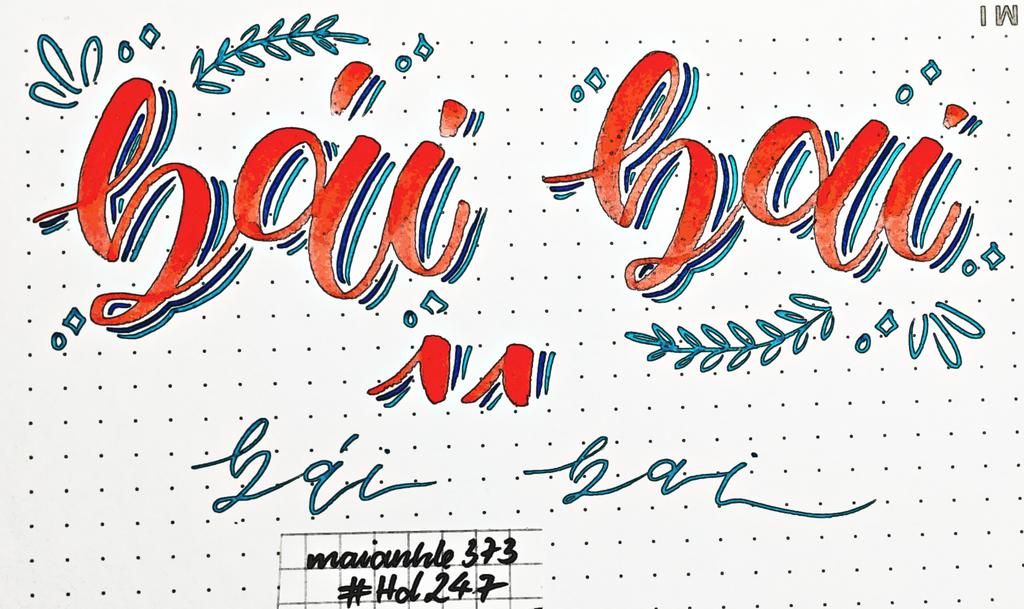 bái bai
11
bái bai
maianhle 373
#Hd247